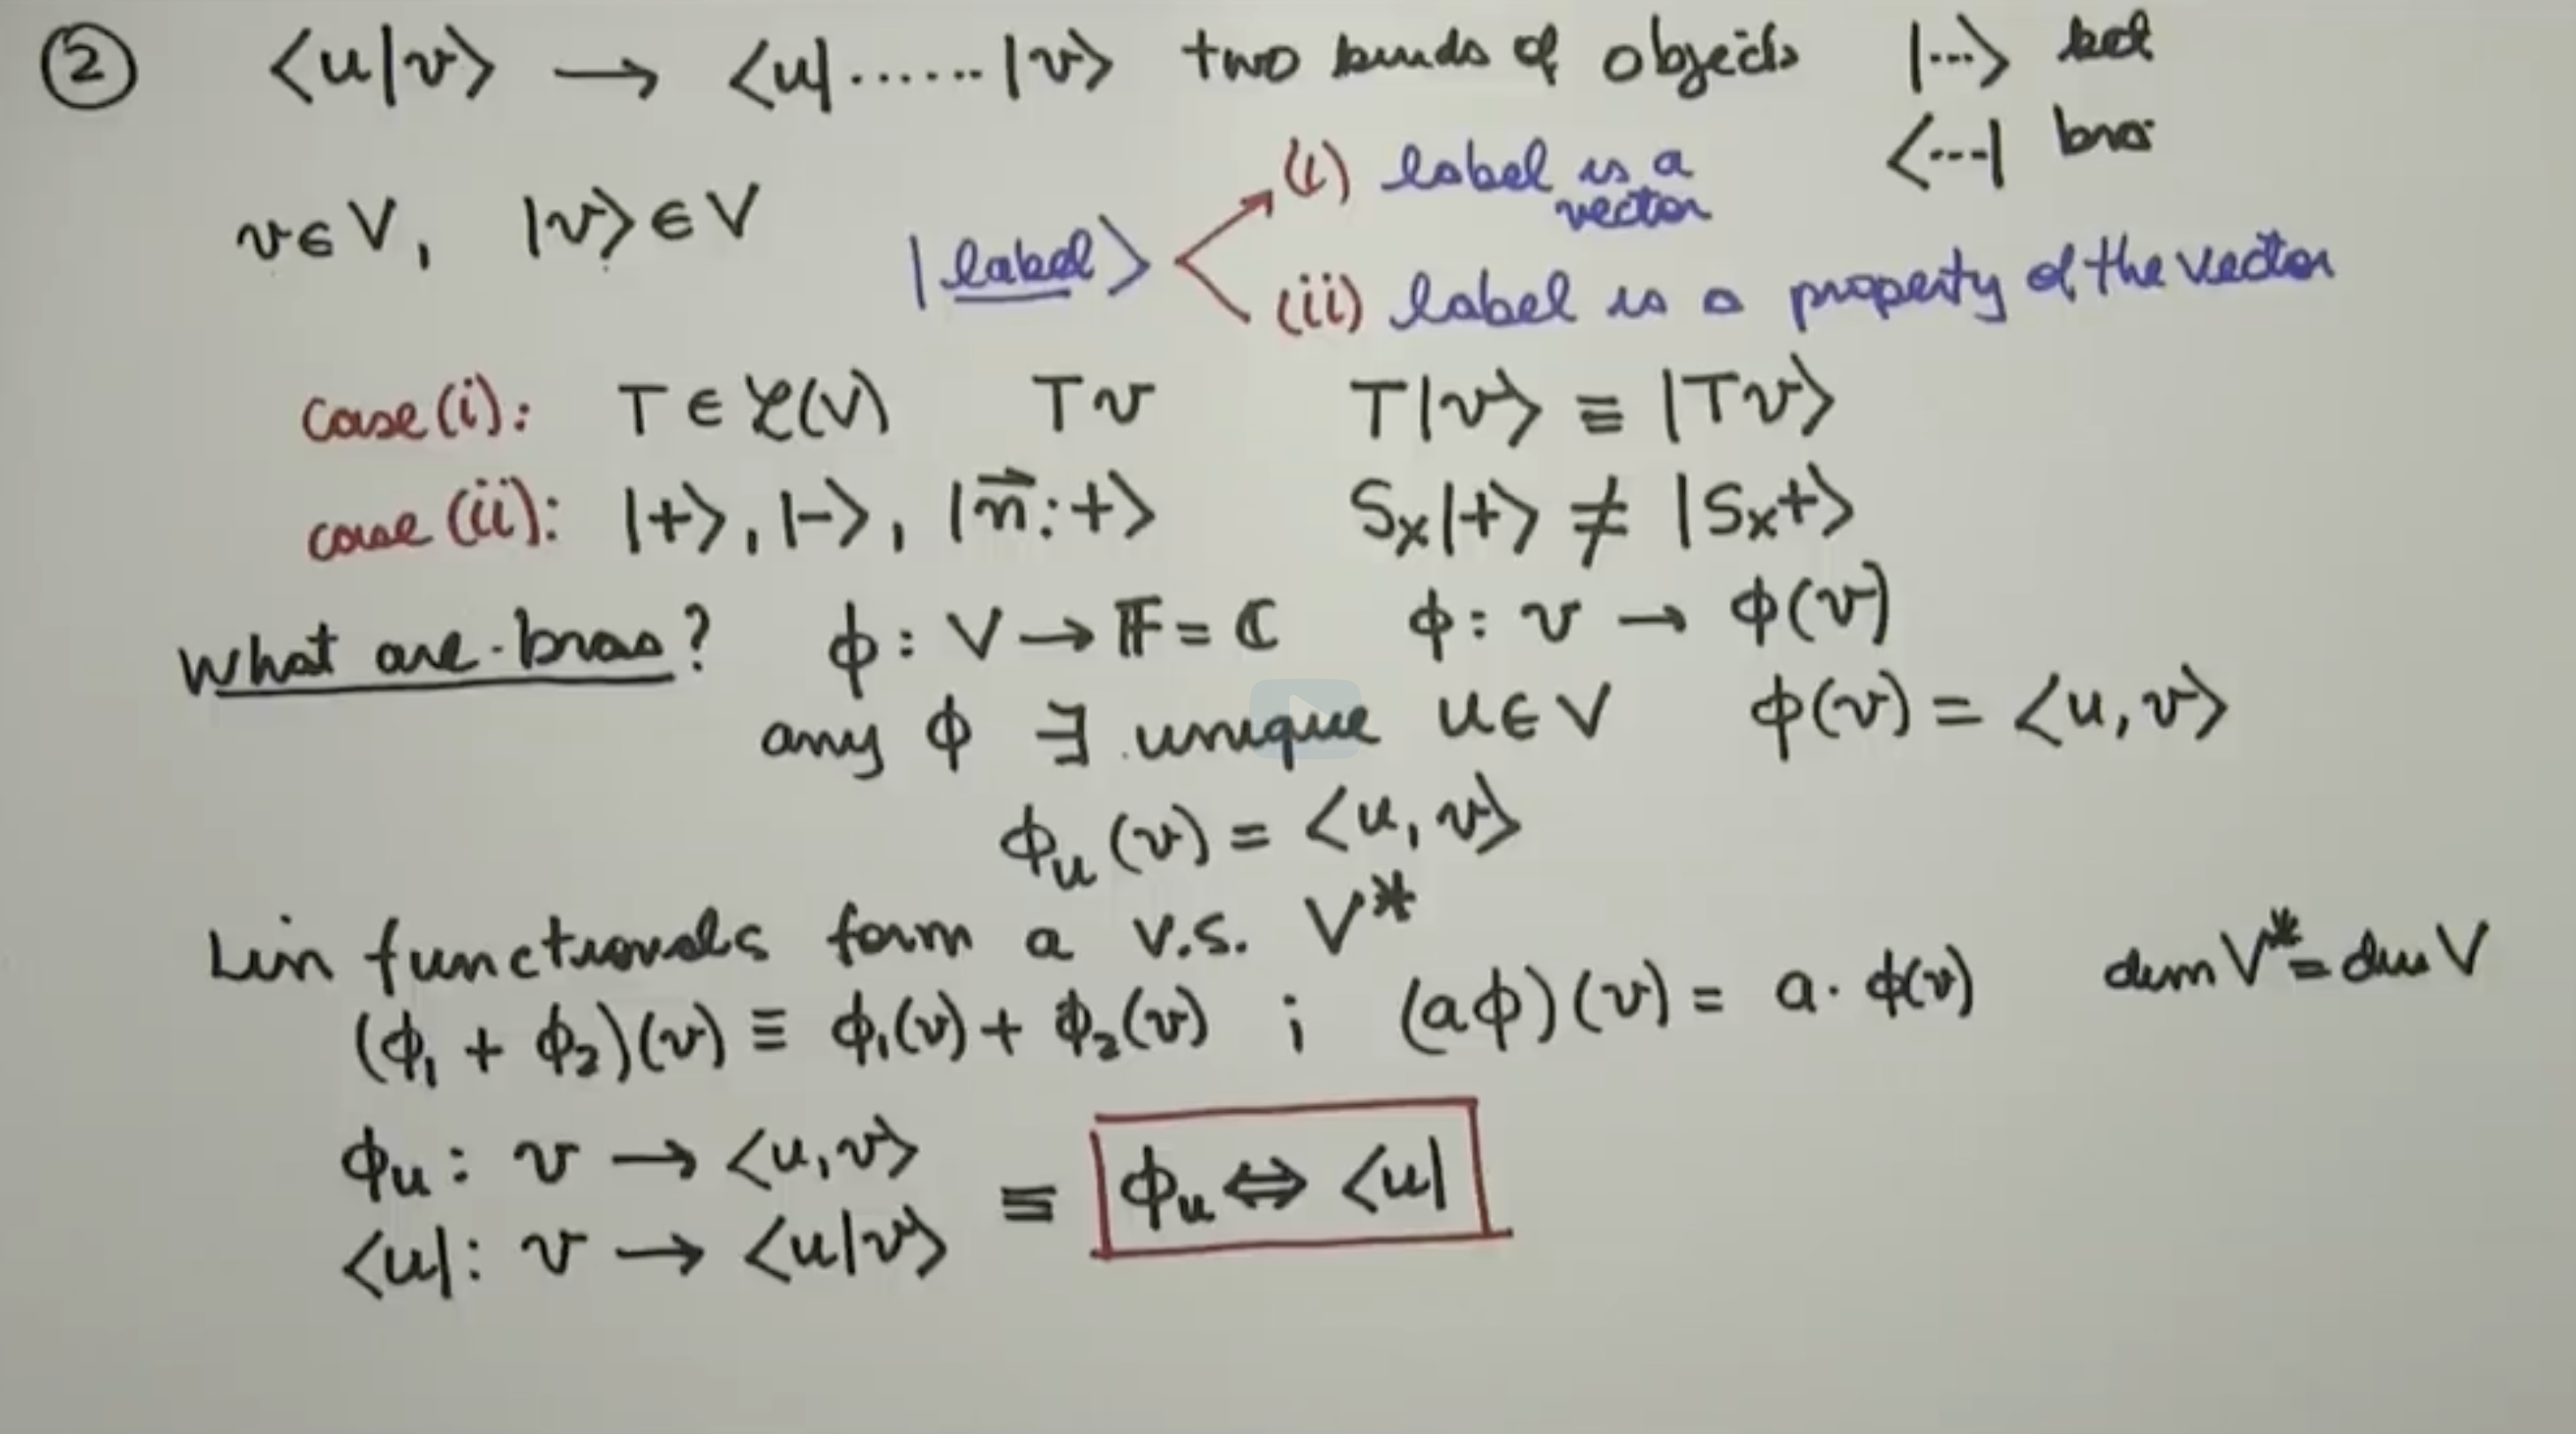 ② ⟨u|v⟩ → ⟨u|.......|v⟩ two kinds of objects |...⟩ ket
⟨...| bra
v∈V, |v⟩∈V
|label⟩
(i) label is a
vector
(ii) label is a property of the vector
case(i): T ∈ ℒ(V) Tv T|v⟩ ≡ |Tv⟩
case(ii): |+⟩, |-⟩, |n⃗:+⟩ Sx|+⟩ ≠ |Sx+⟩
What are bras? ϕ: V → 𝔽 = ℂ ϕ: v → ϕ(v)
any ϕ ∃ unique u∈V ϕ(v) = ⟨u,v⟩
ϕᵤ(v) = ⟨u,v⟩
Lin functionals form a v.s. V*
(ϕ₁ + ϕ₂)(v) ≡ ϕ₁(v) + ϕ₂(v) ; (aϕ)(v) = a·ϕ(v) dim V* = dim V
ϕᵤ: v → ⟨u,v⟩
≡ ϕᵤ ⇔ ⟨u|
⟨u|: v → ⟨u|v⟩